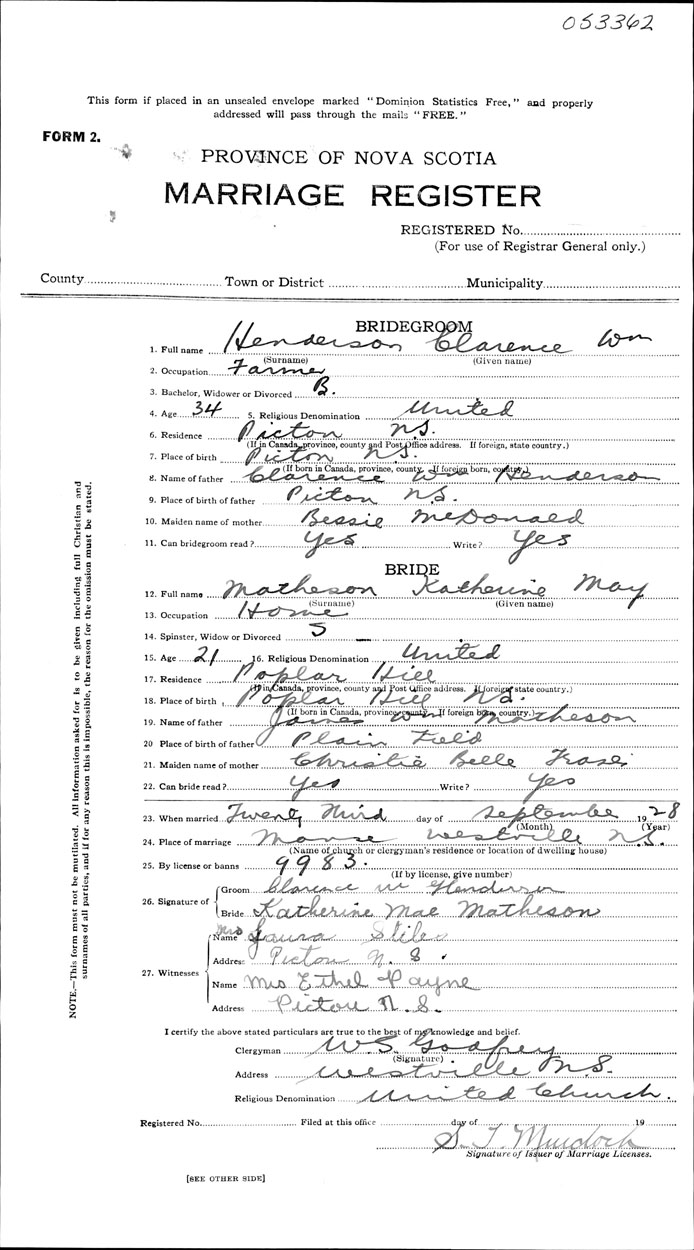 053362
This form if placed in an unsealed envelope marked "Dominion Statistics Free," and properly
addressed will pass through the mails "FREE."
FORM 2.
PROVINCE OF NOVA SCOTIA
MARRIAGE REGISTER
REGISTERED No.
(For use of Registrar General only.)
County Town or District Municipality
BRIDEGROOM
1. Full name Henderson Clarence Wm
(Surname) (Given name)
2. Occupation Farmer
3. Bachelor, Widower or Divorced B.
4. Age 34 5. Religious Denomination United
6. Residence Pictou N.S.
(If in Canada, province, county and Post Office address. If foreign, state country.)
7. Place of birth Pictou N.S.
(If born in Canada, province, county. If foreign born, country.)
8. Name of father Clarence Wm Henderson
9. Place of birth of father Pictou N.S.
10. Maiden name of mother Bessie McDonald
11. Can bridegroom read? Yes Write? Yes
BRIDE
12. Full name Matheson Katherine May
(Surname) (Given name)
13. Occupation Home
14. Spinster, Widow or Divorced S
15. Age 21 16. Religious Denomination United
17. Residence Poplar Hill
(If in Canada, province, county and Post Office address. If foreign state country.)
18. Place of birth Poplar Hill N.S.
(If born in Canada, province, county. If foreign born, country.)
19. Name of father James Wm Matheson
20 Place of birth of father Plain Field
21. Maiden name of mother Christie Belle Fraser
22. Can bride read? Yes Write? Yes
23. When married Twenty Third day of September 1928
(Month) (Year)
24. Place of marriage Manse Westville N.S.
(Name of church or clergyman's residence or location of dwelling house)
25. By license or banns 9983.
(If by license, give number)
26. Signature of Groom Clarence W Henderson
Bride Katherine Mae Matheson
27. Witnesses Name Mrs Laura Stiles
Address Pictou N.S.
Name Mrs Ethel Payne
Address Pictou N.S.
I certify the above stated particulars are true to the best of my knowledge and belief.
Clergyman W.S. Godfrey
(Signature)
Address Westville N.S.
Religious Denomination United Church.
Registered No. Filed at this office day of 19
S. T. Murdoch
Signature of Issuer of Marriage Licenses.
[SEE OTHER SIDE]
NOTE.—This form must not be mutilated. All information asked for is to be given including full Christian and
surnames of all parties, and if for any reason this is impossible, the reason for the omission must be stated.